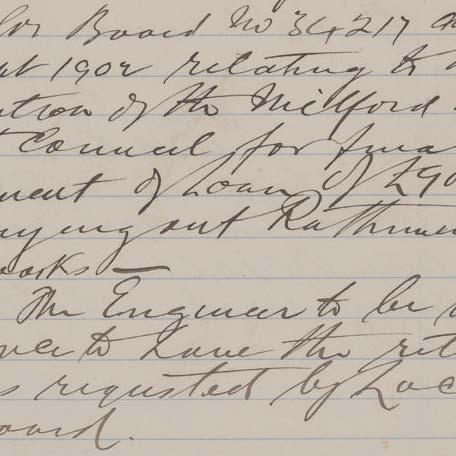 for Board No 34217
pt 1902 relating to
ution of the Milford
t Council for fina
ment of Loan of £90
ying out Rathm
works —
The Engineer to be
once to have the ret
as requested by Loc
oard.